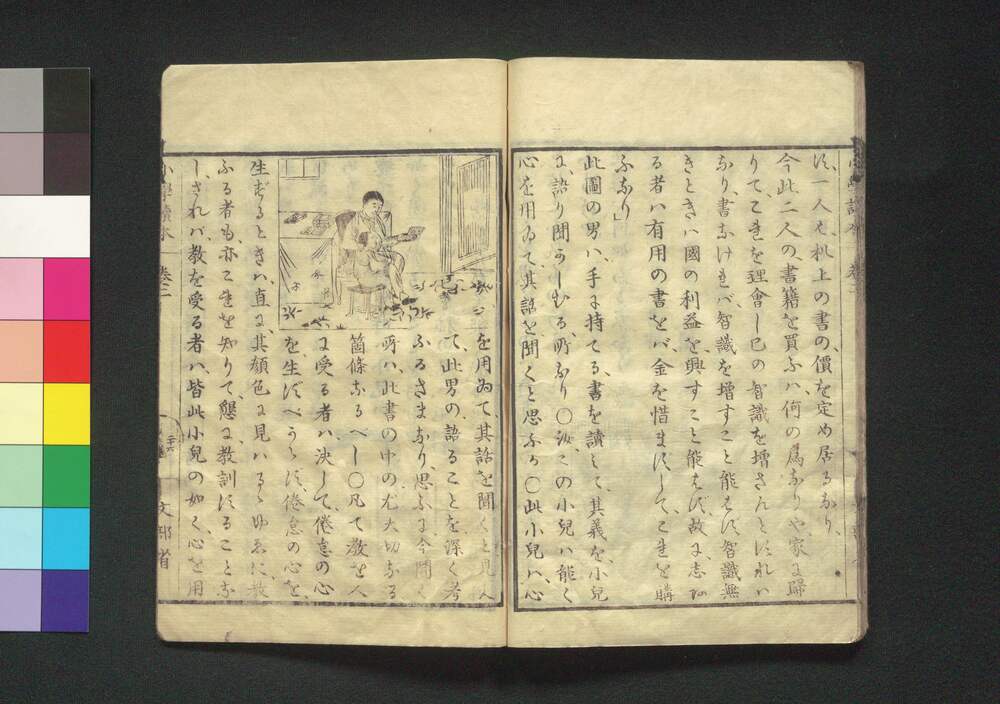 ず、一人は、机上の書の、價を定め居るなり、
今此二人の、書籍を買ふハ、何の爲なりや、家に歸
りて、これを理會し、己の智識を增さんとすれハ
なり、書なけれバ、智識を增すこと能はず、智識無
きときハ、國の利益を興すこと能はず、故に、志
る者ハ、有用の書をバ、金を惜まずして、これを購
ふなり」
此圖の男ハ、手に持てる、書を讀ミて、其義を、小兒
に、語り聞かしむる、所なり〇汝ハ、この小兒ハ、能く
心を用ゐて、其話を、聞くと思ふか〇此小兒ハ、心
を用ゐて、其話を聞くと見へ
て、此男の語ることを、深く考
ふるさまなり、思ふに、今聞く
所ハ、此書の中の、尤大切なる
箇條なるべし〇凡て教を、人
に受る者ハ、決して、倦怠の心
を生ずべからず、倦怠の心を、
生ずるときハ、直に、其顏色に見ハるゝゆゑに、教
ふる者も、亦これを知りて、懇に、教訓することな
し、されバ、教を受る者ハ、皆此小兒の如く、心を用
小學讀本 卷二
文部省